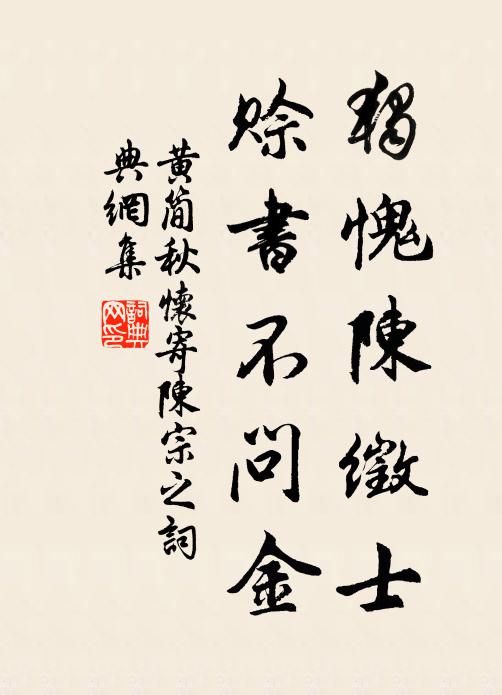 獨愧陳徵士
賒書不問金
黃簡秋懷寄陳宗之詞
典網集
詞典
网印